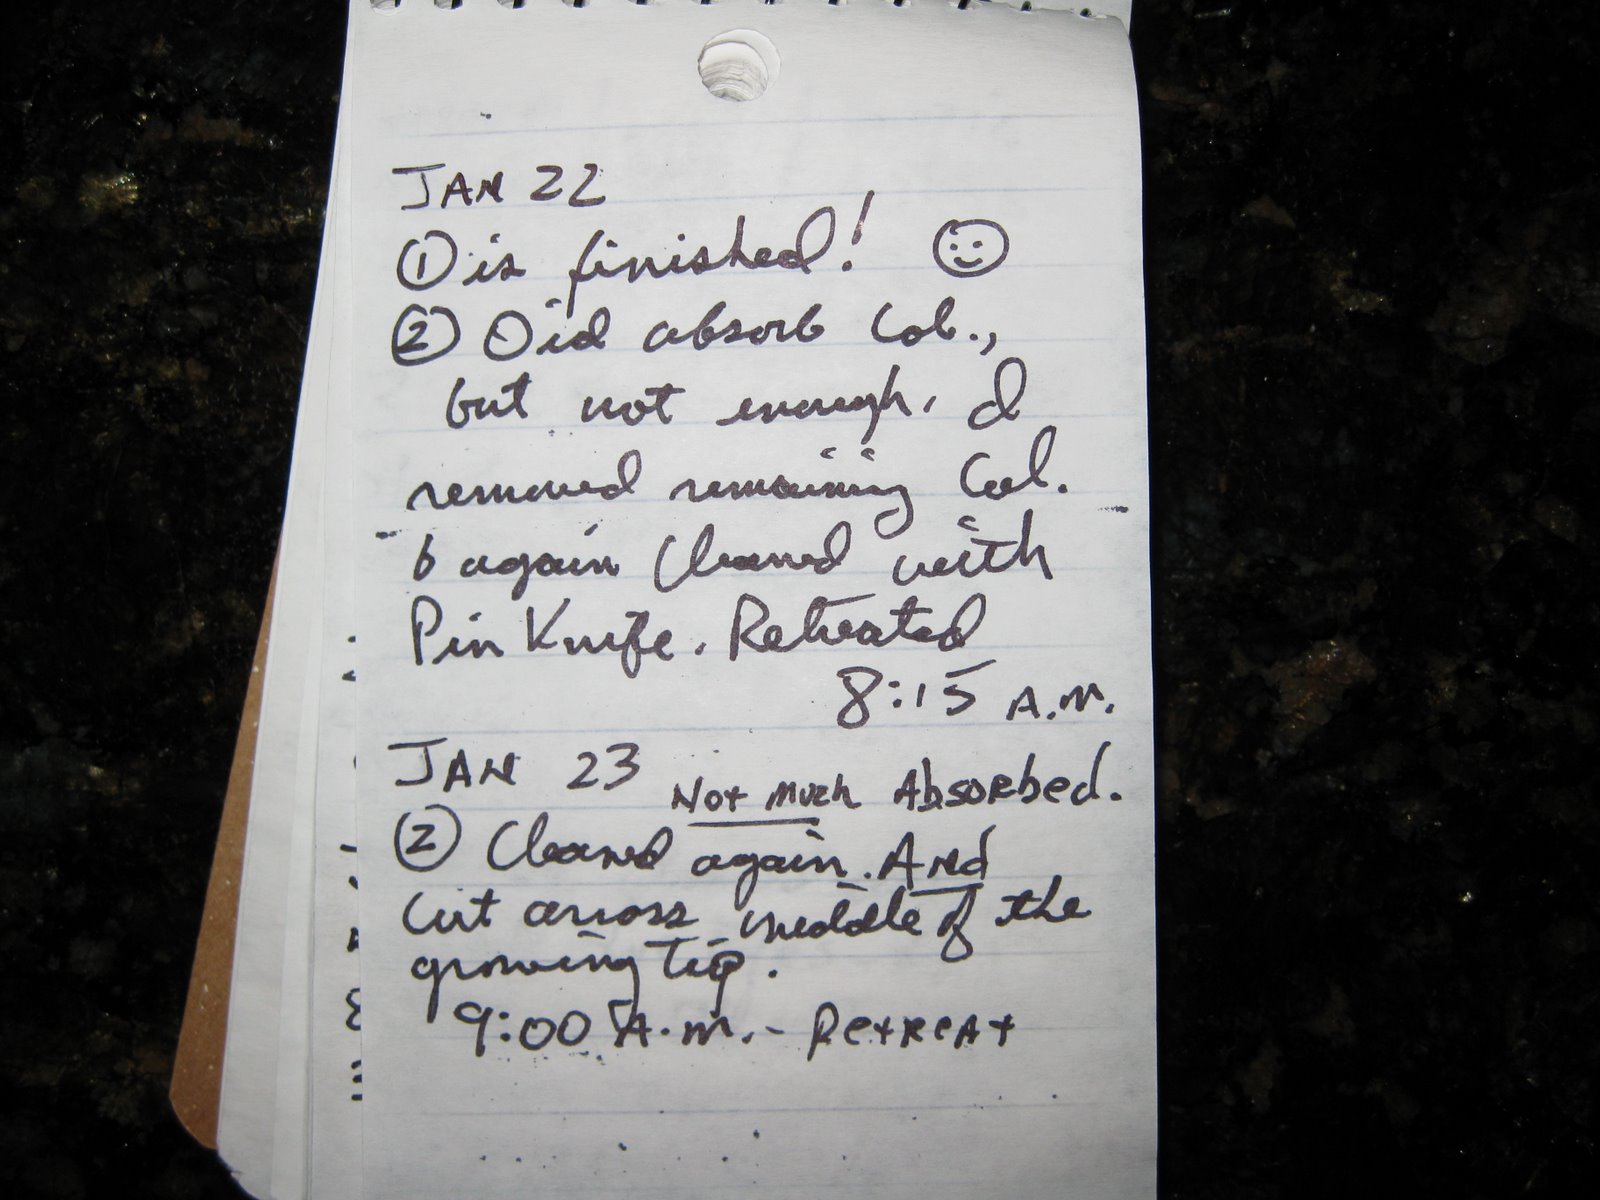 JAN 22
① is finished! ☺
② Did absorb Col.,
but not enough, I
removed remaining Col.
& again Cleaned with
Pin Knife. Retreated
8:15 A.M.
JAN 23 Not Much Absorbed.
② Cleaned again. And
Cut across middle of the
growing tip.
9:00 A.M. - Retreat